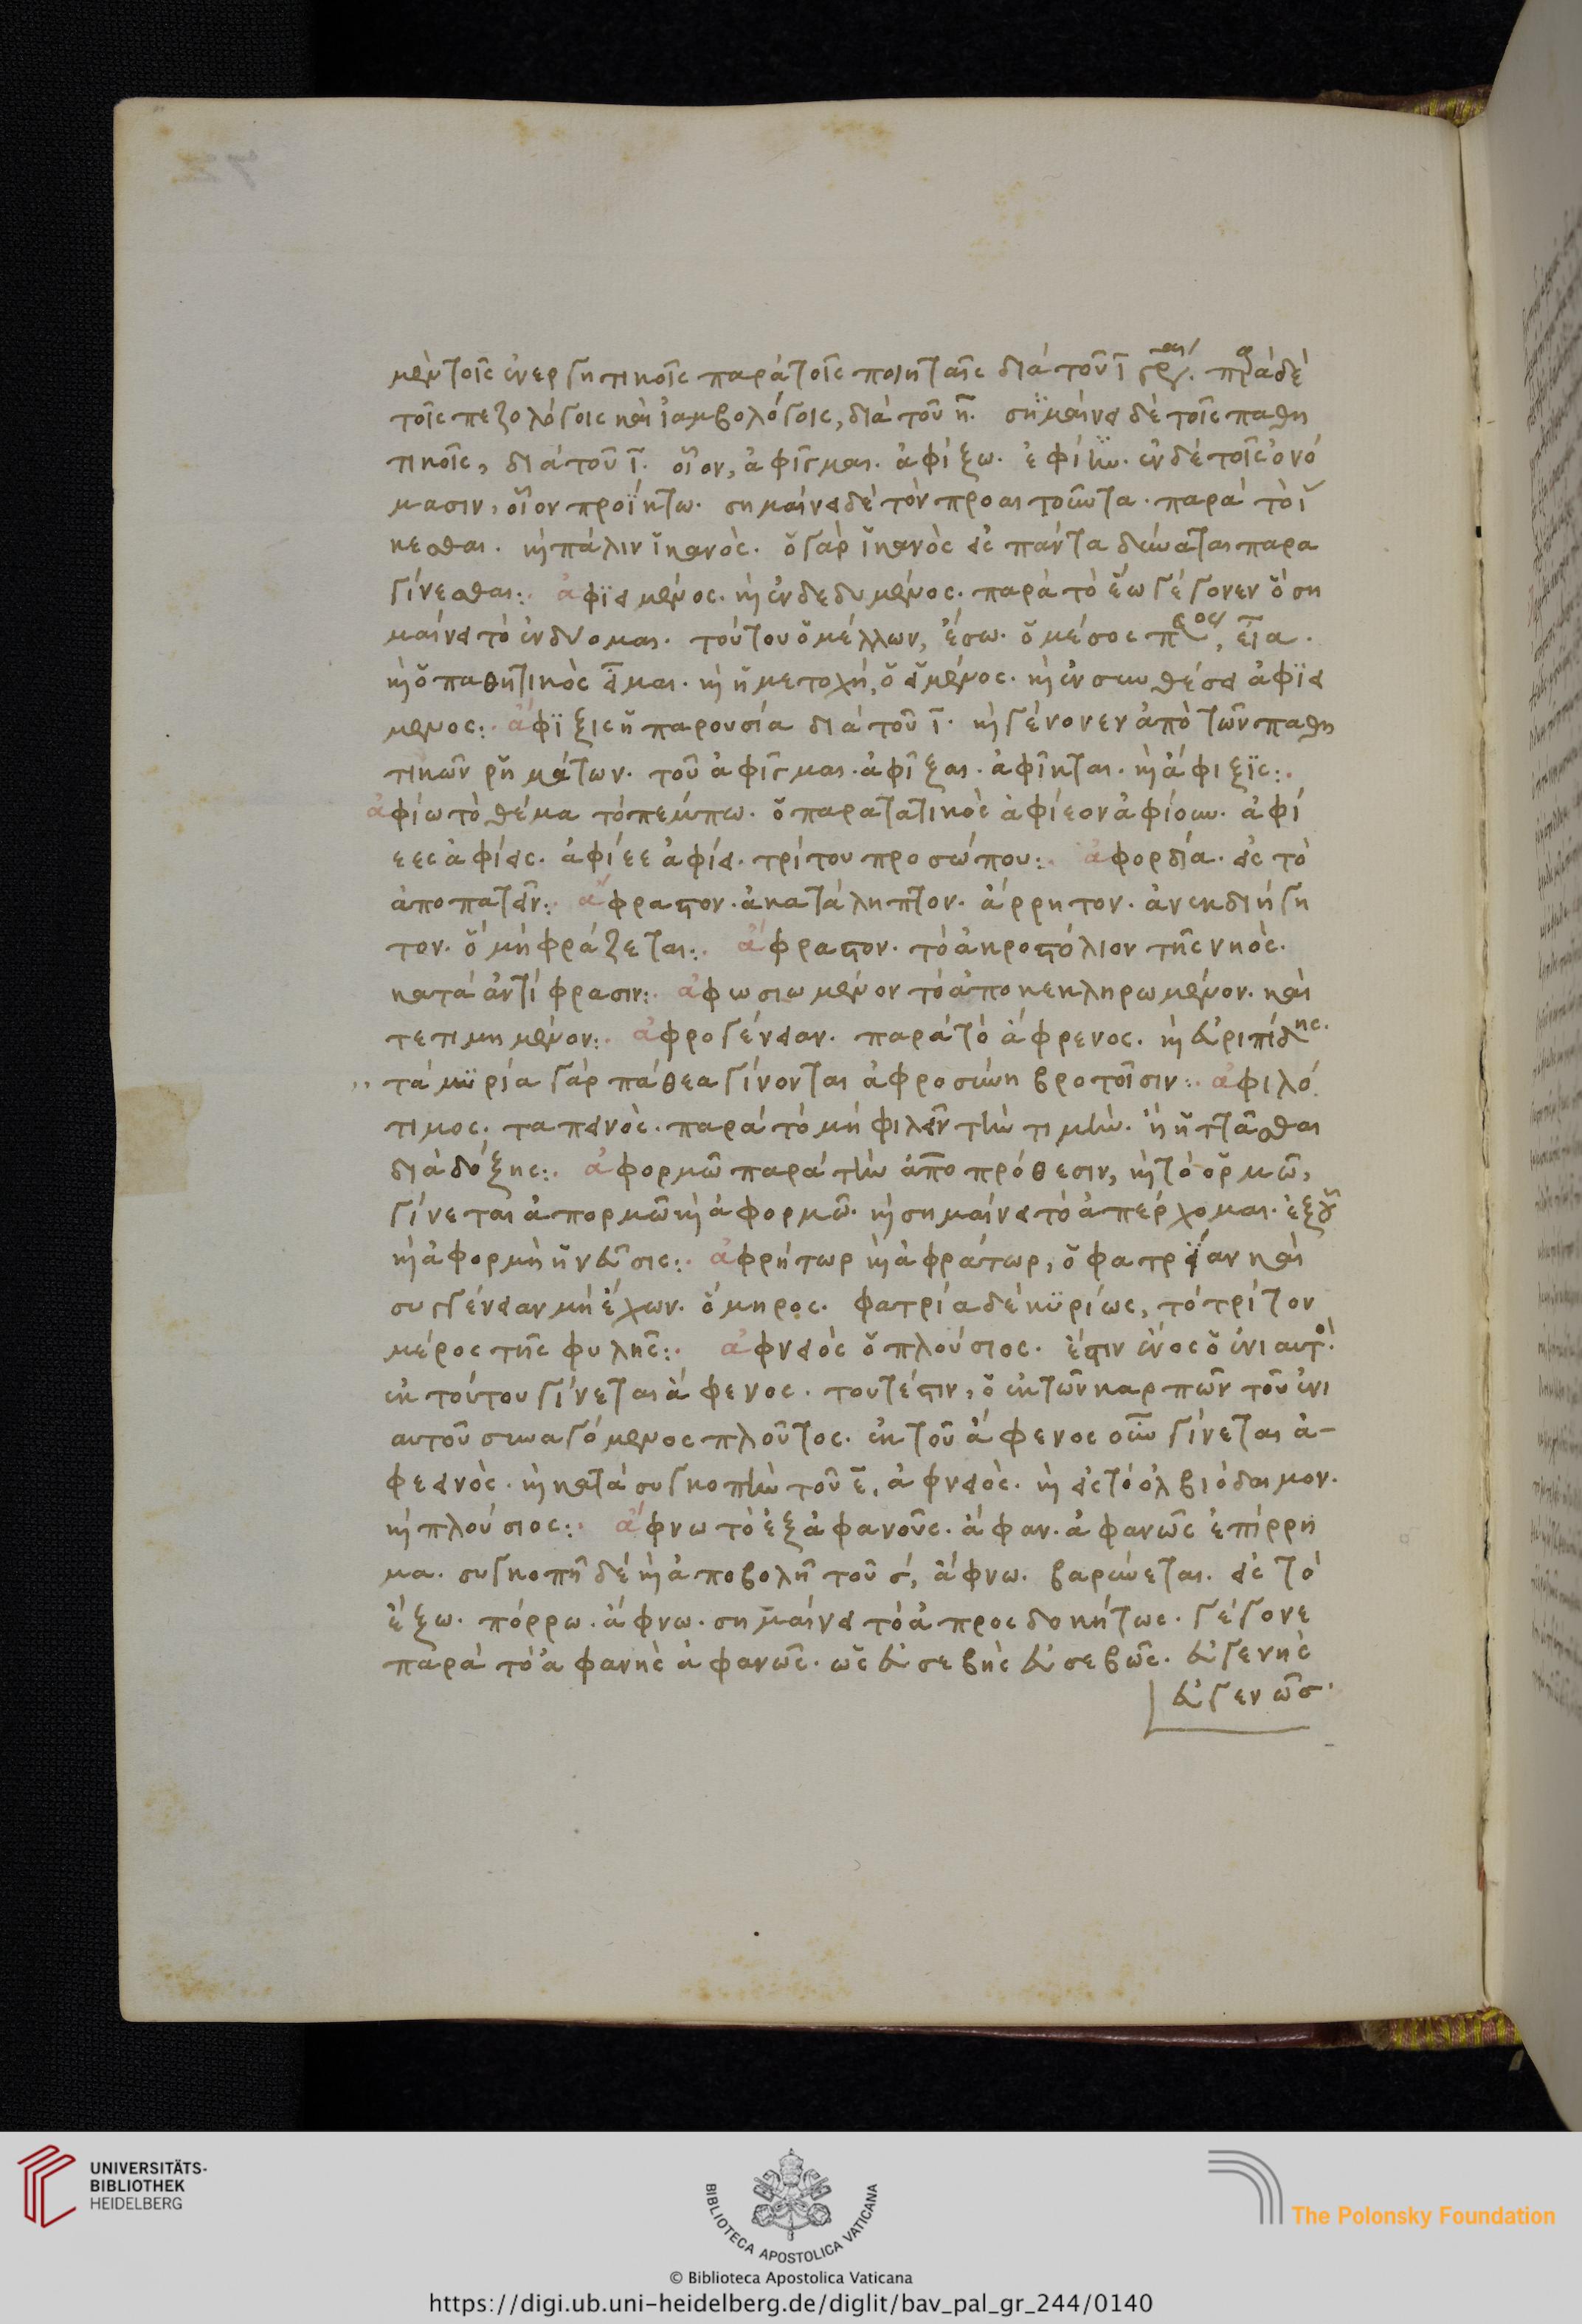 μὲν τοῖς ἐνεργητικοῖς παρὰ τοῖς ποιηταῖς διὰ τοῦ ῑ γρ. π̅ρὰ δὲ
τοῖς πεζολόγοις καὶ ἰαμβολόγοις, διὰ τοῦ η̄. σημαίνει δὲ τοῖς παθη
τικοῖς, διὰ τοῦ ῑ. οἷον, ἀφῖγμαι. ἀφίξω. ἐφίκω. ἐν δὲ τοῖς ὀνό
μασιν, οἷον προΐκτω. σημαίνει δὲ τὸν προαιτοῦντα. παρὰ τὸ ἵ
κεσθαι. καὶ πάλιν ἱκανὸς. ὁ γὰρ ἱκανὸς εἰς πάντα δύναται παρα
γίνεσθαι:. ἀφϊειμένος. καὶ ἐνδεδυμένος. παρὰ τὸ ἕω γέγονεν ὃ ση
μαίνει τὸ ἐνδύομαι. τούτου ὁ μέλλων, ἕσω. ὁ μέσος π, εἷα.
καὶ ὁ παθητικὸς εἷμαι. καὶ ἡ μετοχή, ὁ εἱμένος. καὶ ἐν συνθέσει ἀφϊει
μενος:. ἄφϊξις ἡ παρουσία διὰ τοῦ ῑ. καὶ γέγονεν ἀπὸ τῶν παθη
τικῶν ρημάτων. τοῦ ἀφῖγμαι. ἀφῖξαι. ἀφῖκται. καὶ ἄφιξϊς:.
ἀφίω τὸ θέμα τὸ πέμπω. ὁ παρατατικὸς ἀφίεον ἀφίουν. ἀφί
εες ἀφίεις. ἀφίεε ἀφίει. τρίτου προσώπου:. ἀφορδία. εἰς τὸ
ἀποπατεῖν:. ἄφραστον. ἀκατάληπτον. ἄρρητον. ἀνεκδιήγη
τον. ὃ μὴ φράζεται:. ἄφραστον. τὸ ἀκροστόλιον τῆς νηὸς.
κατὰ ἀντίφρασιν:. ἀφωσιωμένον τὸ ἀποκεκληρωμένον. καὶ
τετιμημένον:. ἀφρογένειαν. παρὰ τὸ ἄφρενος. καὶ εὐριπίδης.
τὰ μϋρία γὰρ πάθεα γίνονται ἀφροσύνη βροτοῖσιν:. ἀφιλό
τιμος. ταπεινὸς. παρὰ τὸ μὴ φιλεῖν τὴν τιμὴν. ἢ ἡττᾶσθαι
διὰ δόξης:. ἀφορμῶ παρὰ τὴν ἀπὸ πρόθεσιν, καὶ τὸ ὁρμῶ,
γίνεται ἀπορμῶ καὶ ἀφορμῶ. καὶ σημαίνει τὸ ἀπέρχομαι. ἐξ οὗ
καὶ ἀφορμὴ ἡ νεῦσις:. ἀφρήτωρ καὶ ἀφράτωρ, ὁ φατρΐαν καὶ
συγγένειαν μὴ ἔχων. ὅμηρος. φατρία δὲ κϋρίως, τὸ τρίτον
μέρος τῆς φυλῆς:. ἀφνειὸς ὁ πλούσιος. ἔστιν ἔνος ὁ ἐνιαυτὸ.
ἐκ τούτου γίνεται ἄφενος. τουτέστιν, ὁ ἐκ τῶν καρπῶν τοῦ ἐνι
αυτοῦ συναγόμενος πλοῦτος. ἐκ τοῦ ἄφενος οὖν γίνεται ἀ-
φεινὸς. καὶ κατὰ συγκοπὴν τοῦ ε̄, ἀφνειὸς. καὶ εἰς τὸ ὀλβιόδαιμον.
καὶ πλούσιος:. ἄφνω τὸ ἐξ ἀφανοῦς. ἄφαν. ἀφανῶς ἐπίρρη
μα. συγκοπῆ δὲ καὶ ἀποβολῆ τοῦ σ, ἄφνω. βαρύνεται. εἰς τὸ
ἔξω. πόρρω. ἄφνω. σημαίνει τὸ ἀπροσδοκήτως. γέγονε
παρὰ τὸ ἀφανὴς ἀφανῶς. ὡς εὐσεβὴς εὐσεβῶς. εὐγενὴς
εὐγενῶσ.
UNIVERSITÄTS-
BIBLIOTHEK
HEIDELBERG
BIBLIOTECA APOSTOLICA VATICANA
The Polonsky Foundation
© Biblioteca Apostolica Vaticana
https://digi.ub.uni-heidelberg.de/diglit/bav_pal_gr_244/0140